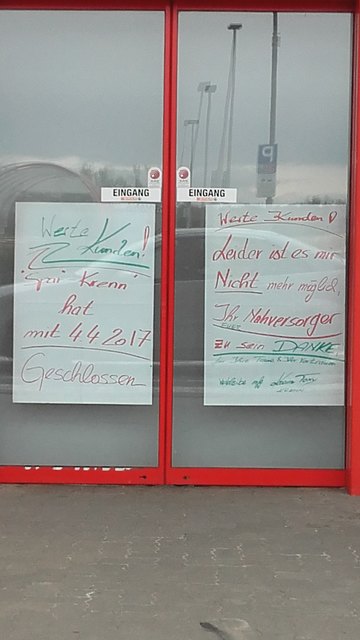 EINGANG
EINGANG
Werte
Kunden!
"Spar Krenn"
hat
mit 4 4 2017
Geschlossen
Werte Kunden!
Leider ist es mir
Nicht mehr möglich,
Ihr Nahversorger
zu sein DANKE,